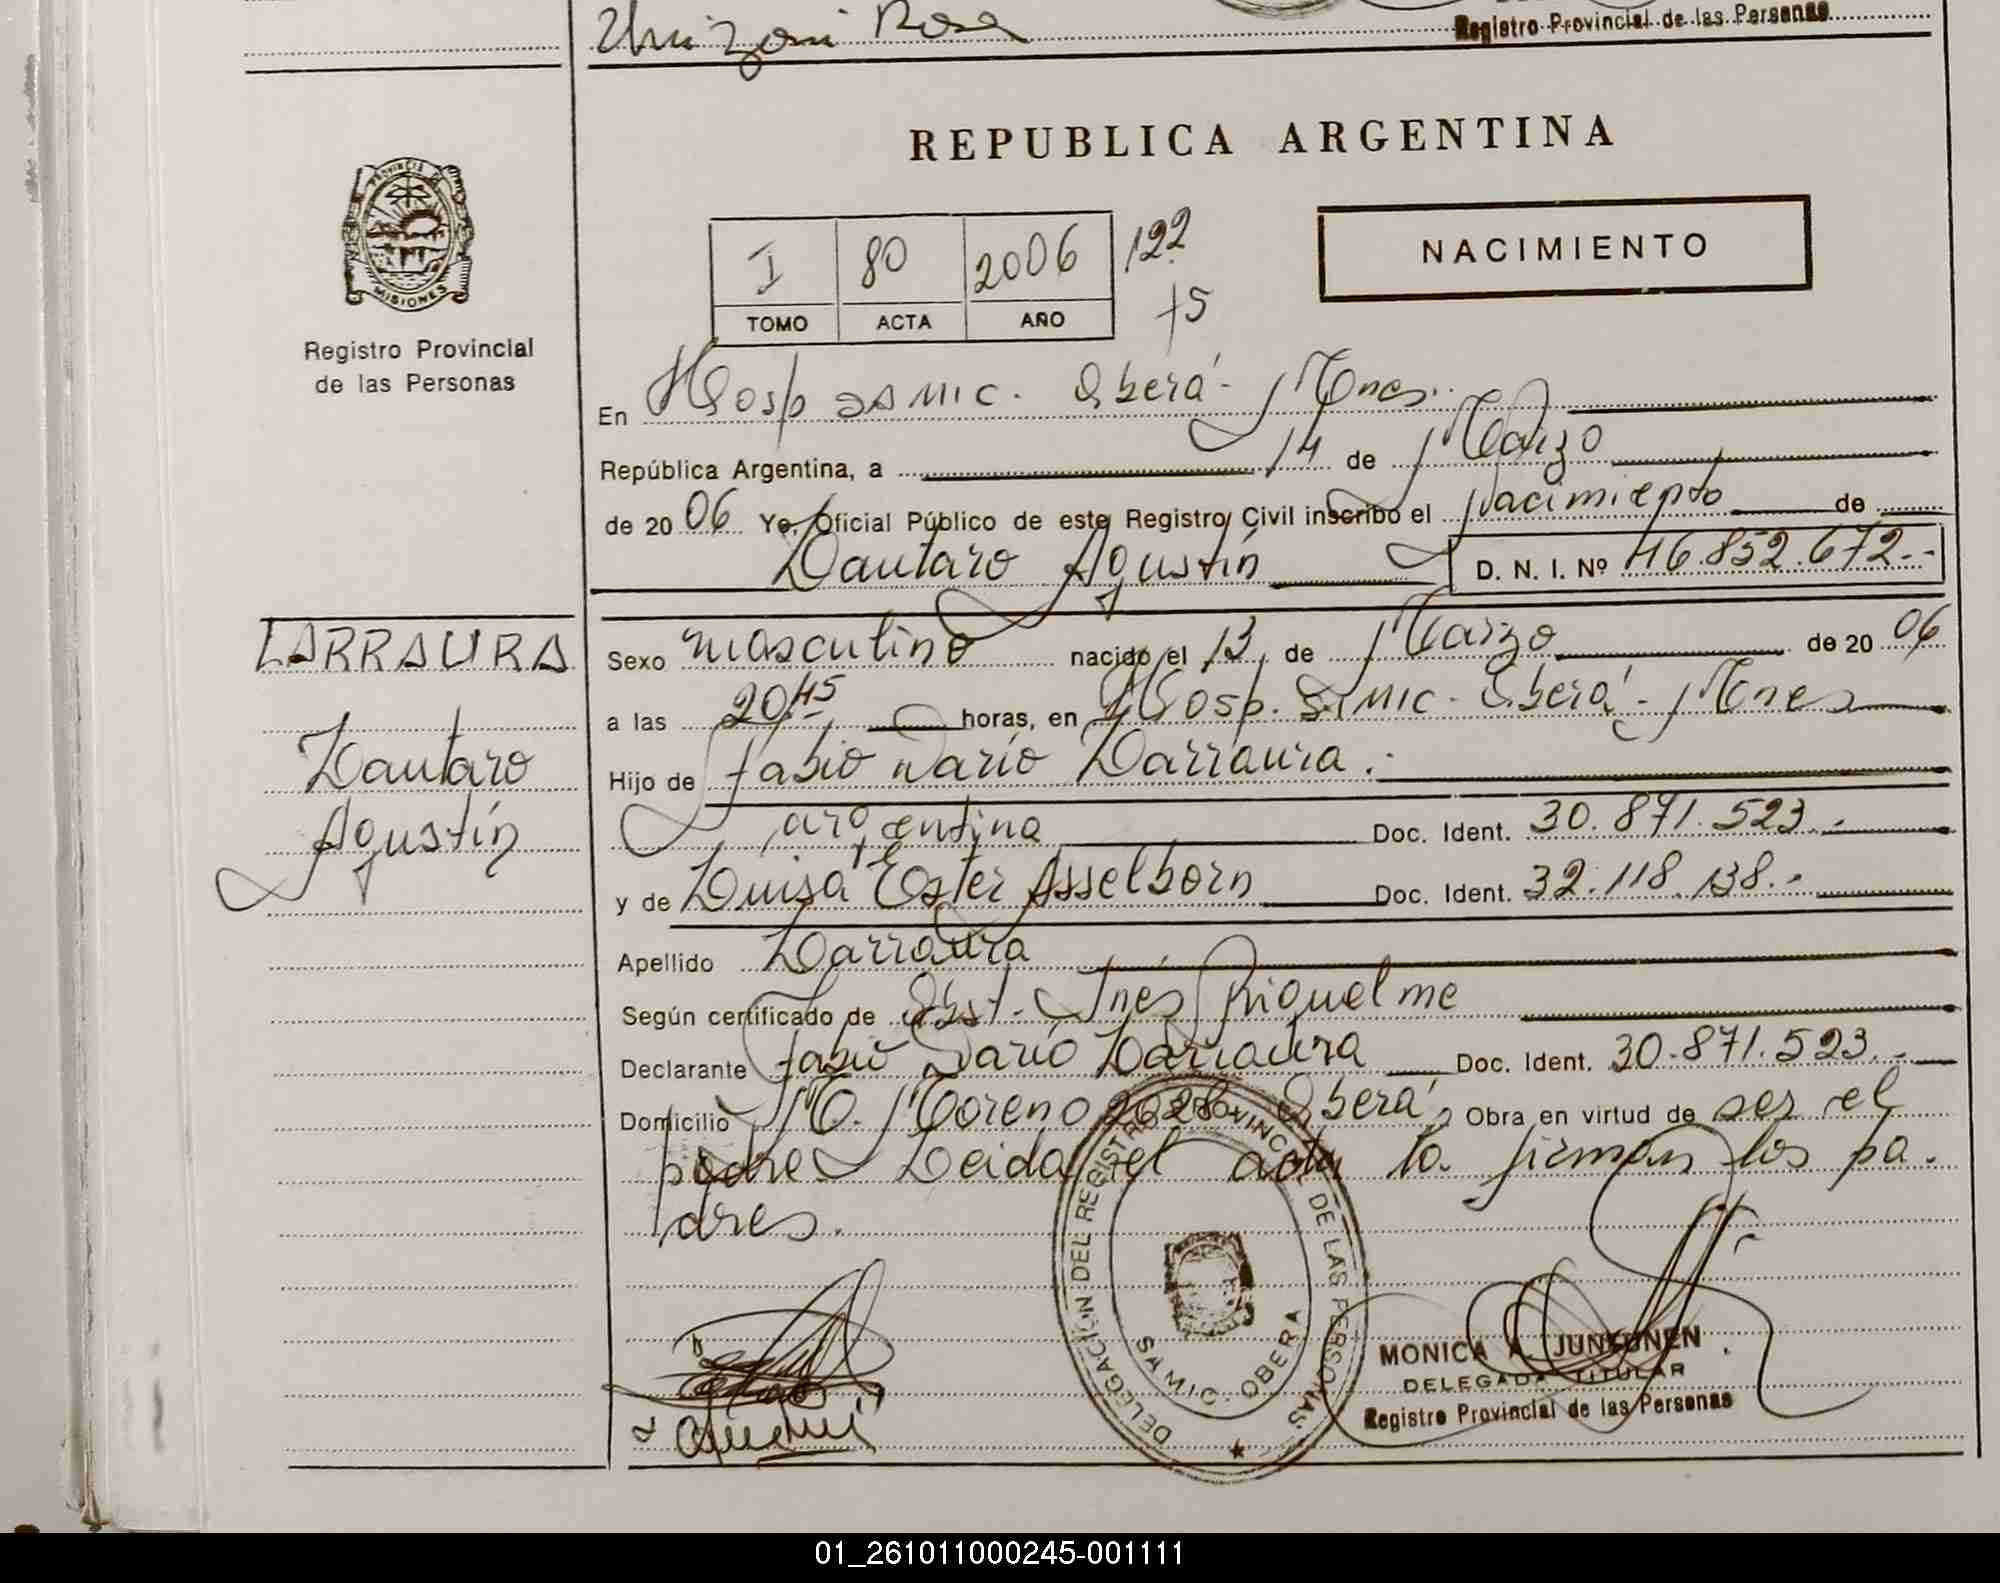 Registro Provincial de las Personas
Rosa
REPUBLICA ARGENTINA
PROVINCIA DE
MISIONES
Registro Provincial
de las Personas
I 80 2006 122
TOMO ACTA AÑO 75
NACIMIENTO
En Hosp SAMIC. Oberá - Mnes.
República Argentina, a 14 de Marzo
de 2006 Yo, Oficial Público de este Registro Civil inscribo el Nacimiento de
Lautaro Agustín D. N. I. Nº 46.852.672.-
LARRAURA
Lautaro
Agustín
Sexo masculino nacido el 13 de Marzo de 2006
a las 20,45 horas, en Hosp. SAMIC - Oberá - Mnes
Hijo de Fabio Darío Larraura.-
argentina Doc. Ident. 30.871.523.-
y de Luisa Ester Asselborn Doc. Ident. 32.118.138.-
Apellido Larraura
Según certificado de Obst. Inés Riquelme
Declarante Fabio Darío Larraura Doc. Ident. 30.871.523.-
Domicilio M. Moreno 2628 Oberá, Obra en virtud de ser el
padre Leida el acta la firman los pa-
dres.
DELEGACION DEL REGISTRO PROVINCIAL DE LAS PERSONAS
SAMIC. OBERA
MONICA A. JUNTUNEN
DELEGADA TITULAR
Registro Provincial de las Personas
01_261011000245-001111